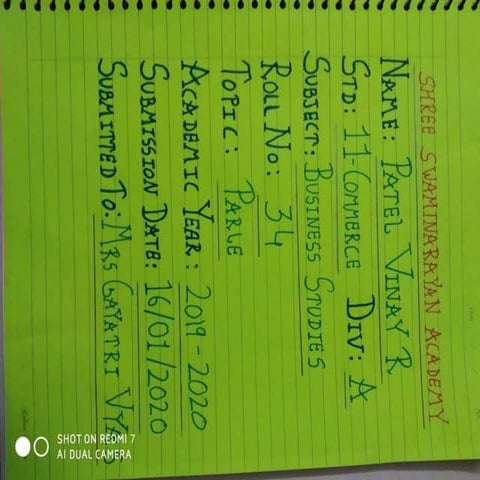 SHREE SWAMINARAYAN ACADEMY
NAME: PATEL VINAY R
STD: 11-COMMERCE DIV: A
SUBJECT: BUSINESS STUDIES
ROLL NO: 34
TOPIC: PARLE
ACADEMIC YEAR: 2019-2020
SUBMISSION DATE: 16/01/2020
SUBMITTED TO: MRS GAYATRI VYAS
SHOT ON REDMI 7
AI DUAL CAMERA